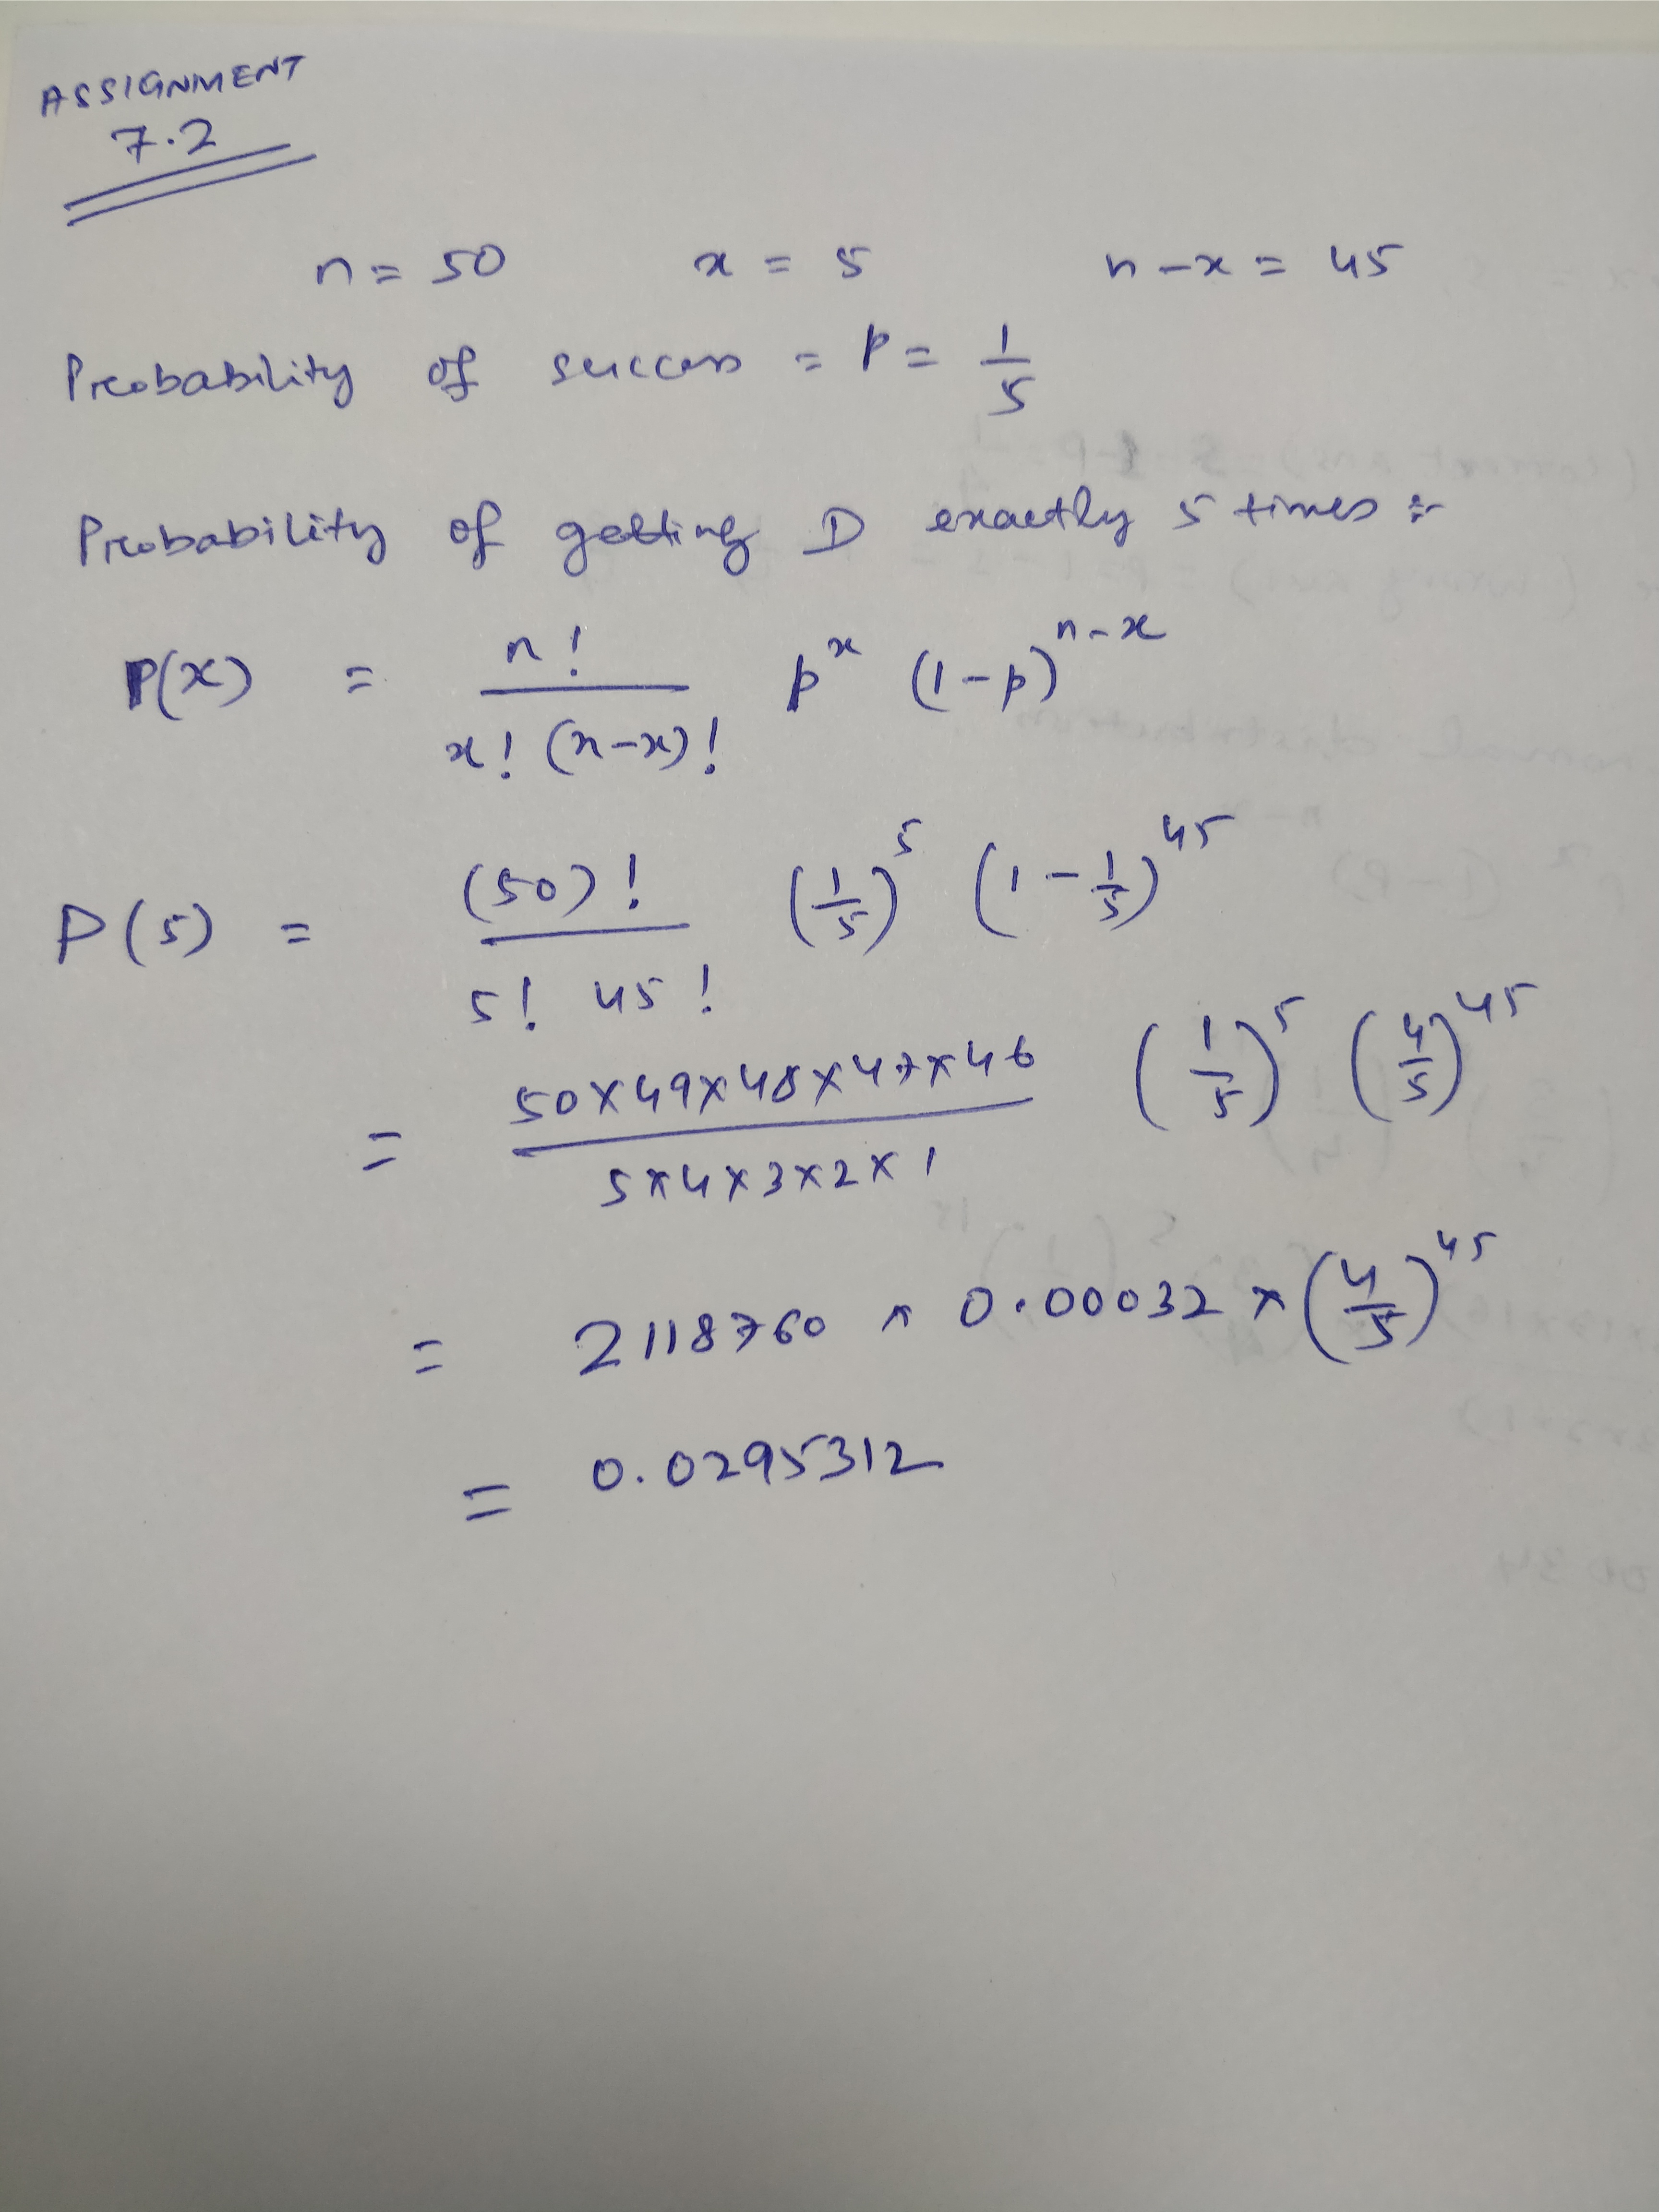 ASSIGNMENT
7.2
n = 50 x = 5 n-x = 45
Probability of success = P = 1/5
Probability of getting D exactly 5 times :-
P(x) = n! / x! (n-x)! p^x (1-p)^n-x
P(5) = (50)! / 5! 45! (1/5)^5 (1 - 1/5)^45
= 50×49×48×47×46 / 5×4×3×2×1 (1/5)^5 (4/5)^45
= 2118760 × 0.00032 × (4/5)^45
= 0.0295312